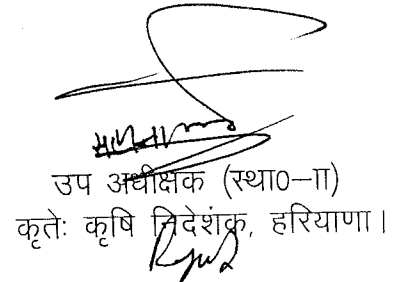 उप अधीक्षक (स्था0-II)
कृतेः कृषि निदेशक, हरियाणा।